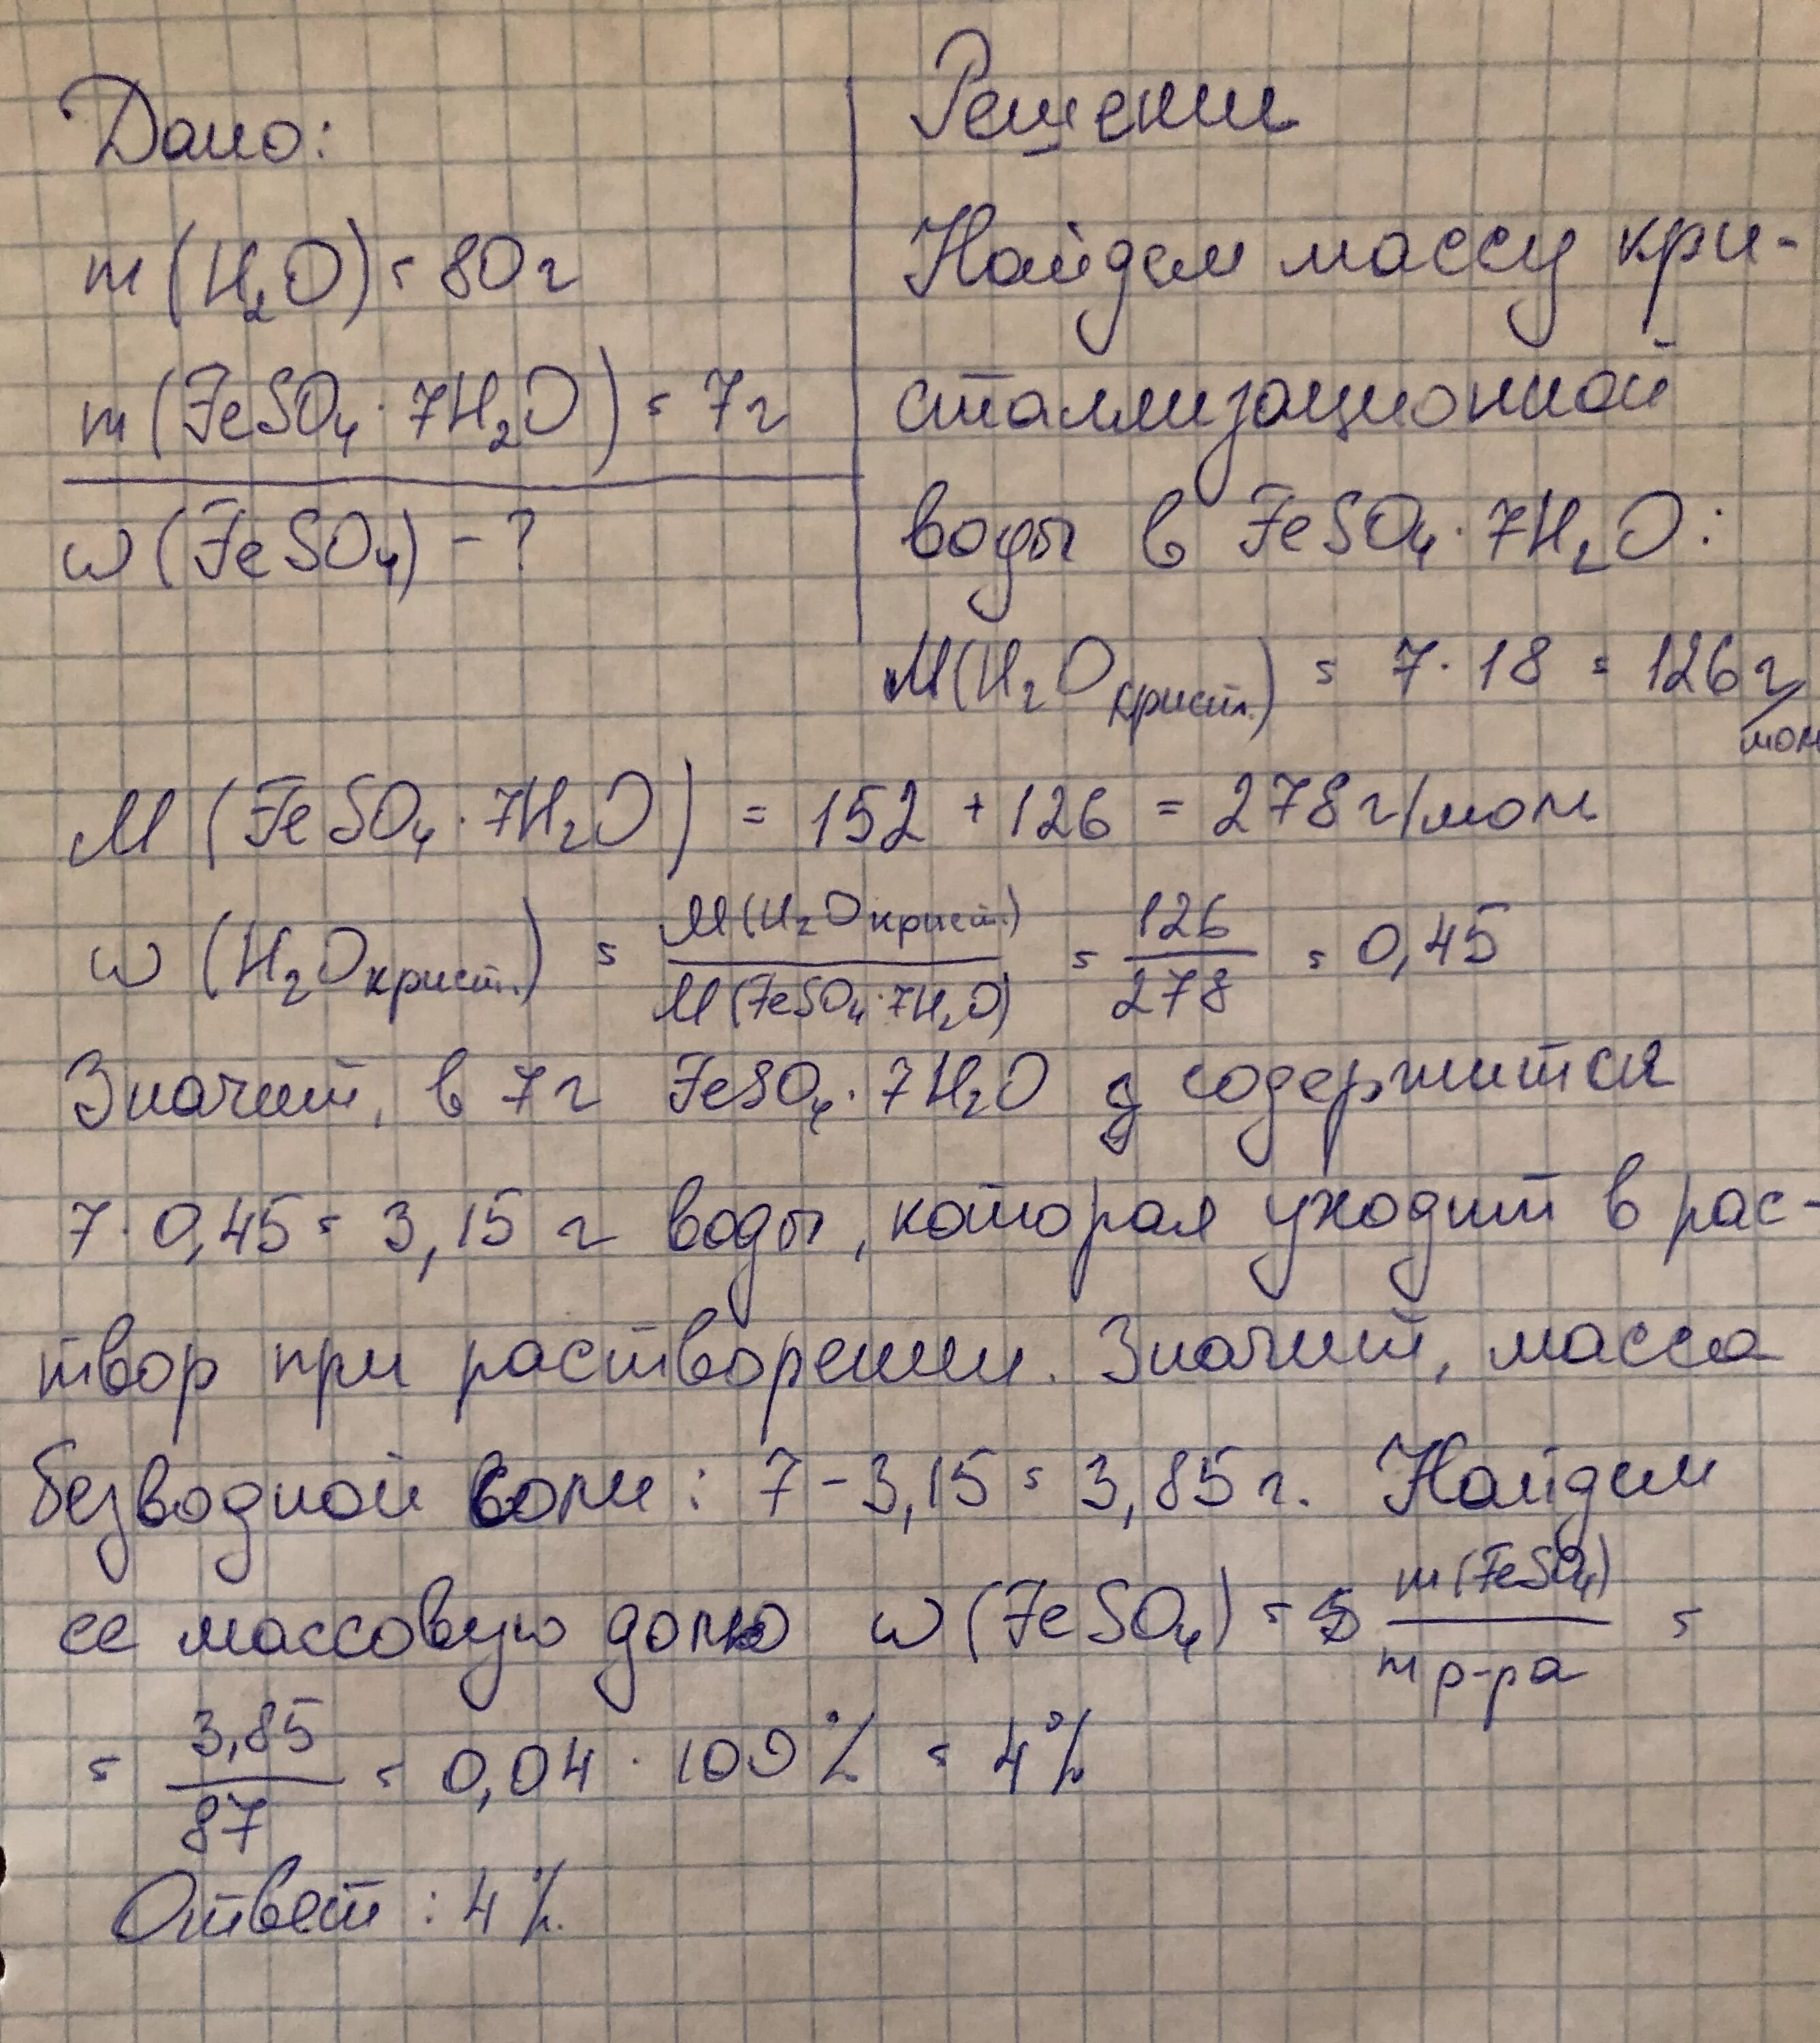 Дано:
m(H₂O) = 80г
m(FeSO₄·7H₂O) = 7г
ω(FeSO₄) - ?
Решение
Найдем массу кри-
сталлизационной
воды в FeSO₄·7H₂O:
M(H₂O крист.) = 7·18 = 126г/моль
M(FeSO₄·7H₂O) = 152 + 126 = 278г/моль
ω(H₂O крист.) = M(H₂O крист.)/M(FeSO₄·7H₂O) = 126/278 = 0,45
Значит, в 7г FeSO₄·7H₂O содержится
7·0,45 = 3,15 г воды, которая уходит в рас-
твор при растворении. Значит, масса
безводной соли: 7 - 3,15 = 3,85 г. Найдем
ее массовую долю ω(FeSO₄) = m(FeSO₄)/m р-ра =
= 3,85/87 = 0,04 · 100% = 4%
Ответ: 4%.